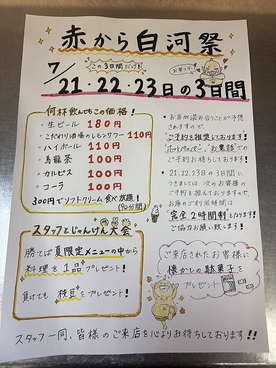 赤から白河祭
この3日間だけ!!
お祭りだ
7/21・22・23日の3日間
何杯飲んでもこの価格!
・生ビール 180円
・こだわり酒場のレモンサワー 110円
・ハイボール 110円
・烏龍茶 100円
・カルピス 100円
・コーラ 100円
300円でソフトクリーム食べ放題!
(90分間)
・お店が混み合うことが予想
されますので、
ご予約を推奨しております!
ホットペッパー、お電話での
ご予約お待ちしております!
・21,22,23日の3日間に
つきましては、次のお客様の
ご予約を推しておりますので、
お席のご利用時間は
完全2時間制となります!
ご協力お願い致します!
スタッフとじゃんけん大会
勝てば夏限定メニューの中から
料理を1品プレゼント!
負けても枝豆をプレゼント!
ご来店されたお客様に
懐かしの駄菓子を
プレゼント!
スタッフ一同、皆様のご来店を心よりお待ちしております!!